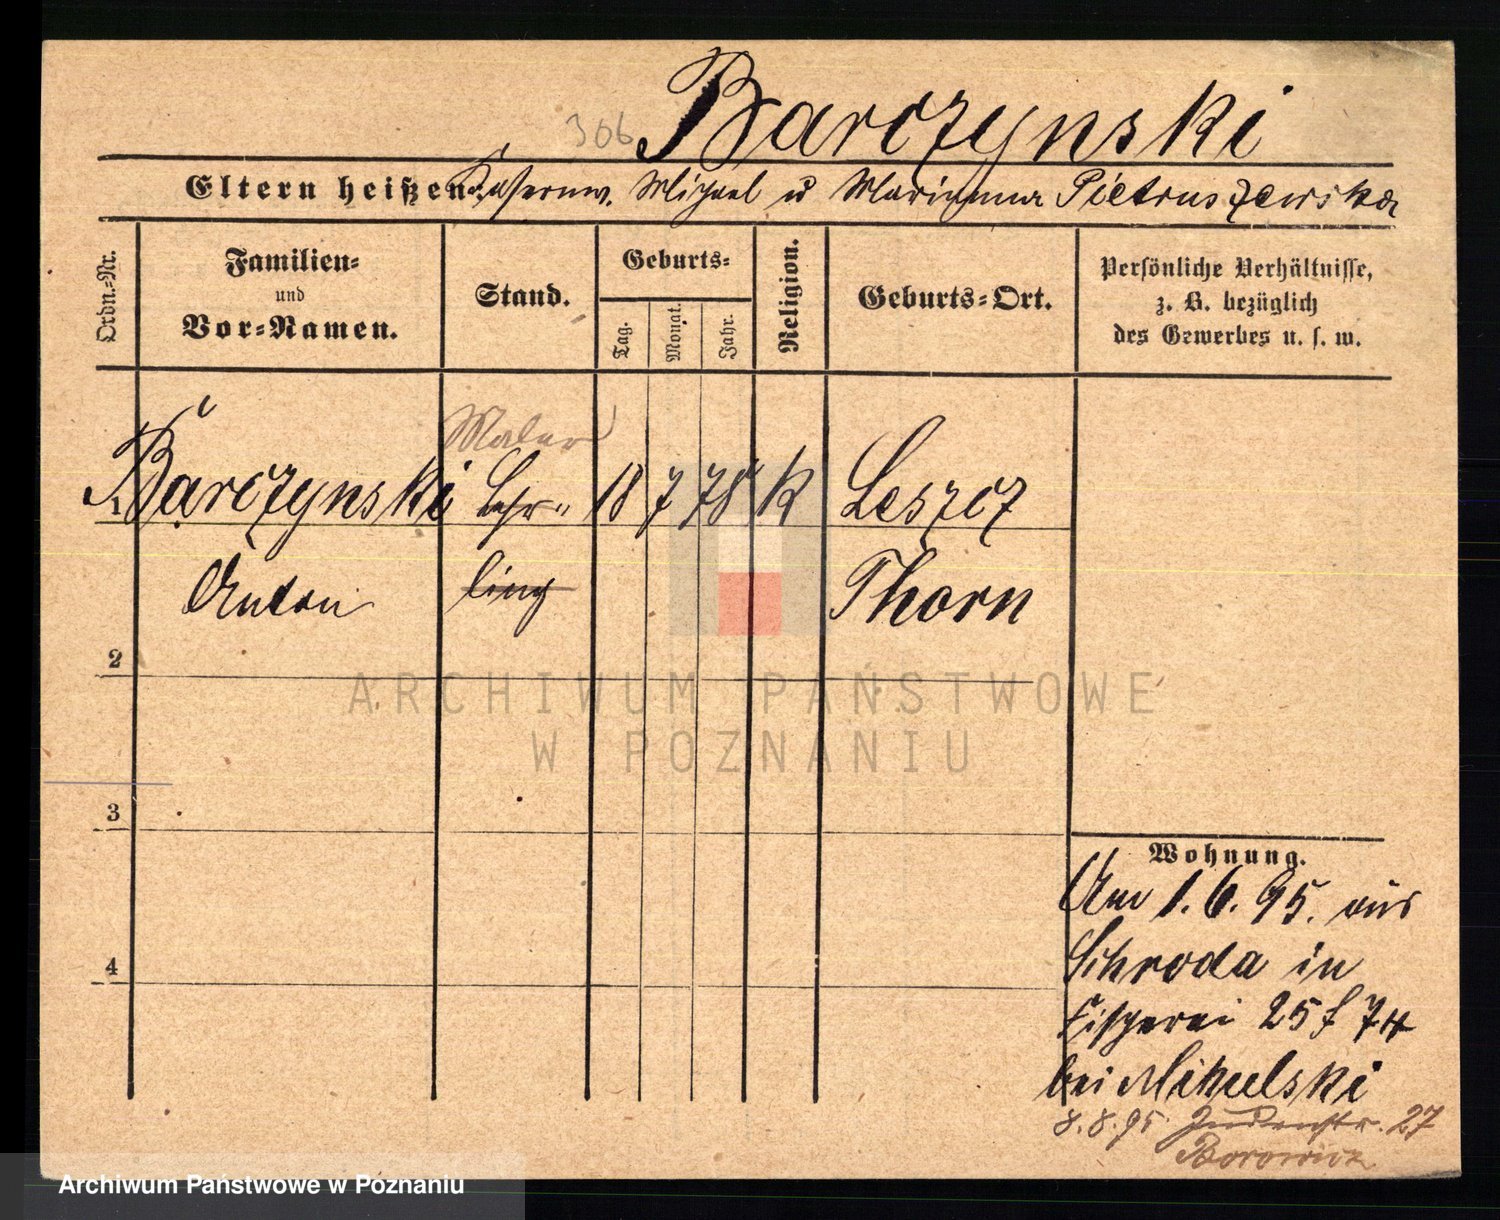 306 Barczynski
Eltern heißen: Michael u Marianna Pietruszewska
Ordn.-Nr.
Familien-
und
Vor-Namen.
Stand.
Geburts-
Tag.
Monat.
Jahr.
Religion.
Geburts-Ort.
Persönliche Verhältnisse,
z. B. bezüglich
des Gewerbes u. s. w.
Maler
1 Barczynski Lehr- 18 7 78 K Leszcz
Anton ling Thorn
2
ARCHIWUM PAŃSTWOWE
W POZNANIU
3
Wohnung.
Am 1. 6. 95. aus
Schroda in
4
Fischerei 25 f 74
bei Mikulski
8. 8. 95. Judenstr. 27
Borowicz
Archiwum Państwowe w Poznaniu